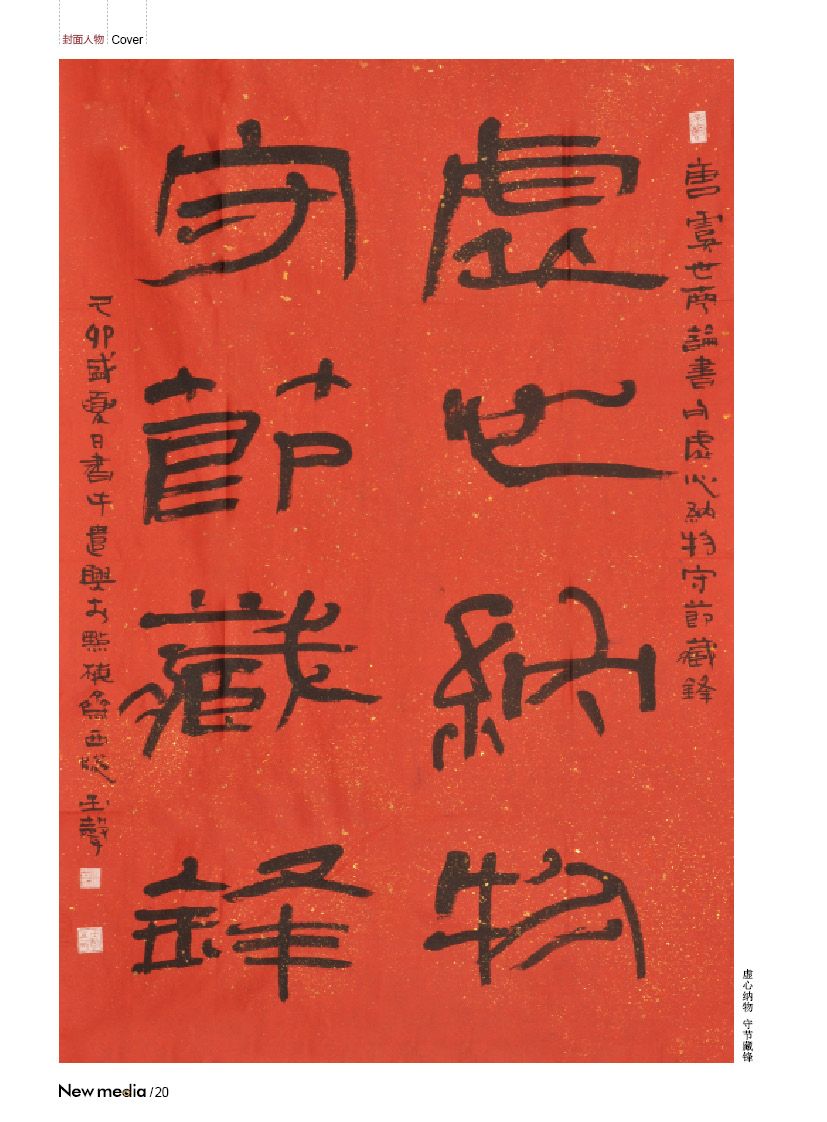 封面人物 Cover
唐虞世南論書句虛心納物守節藏鋒
虛心納物
守節藏鋒
己卯盛夏日書遣興於點西玉聲
虚心纳物 守节藏锋
New media / 20